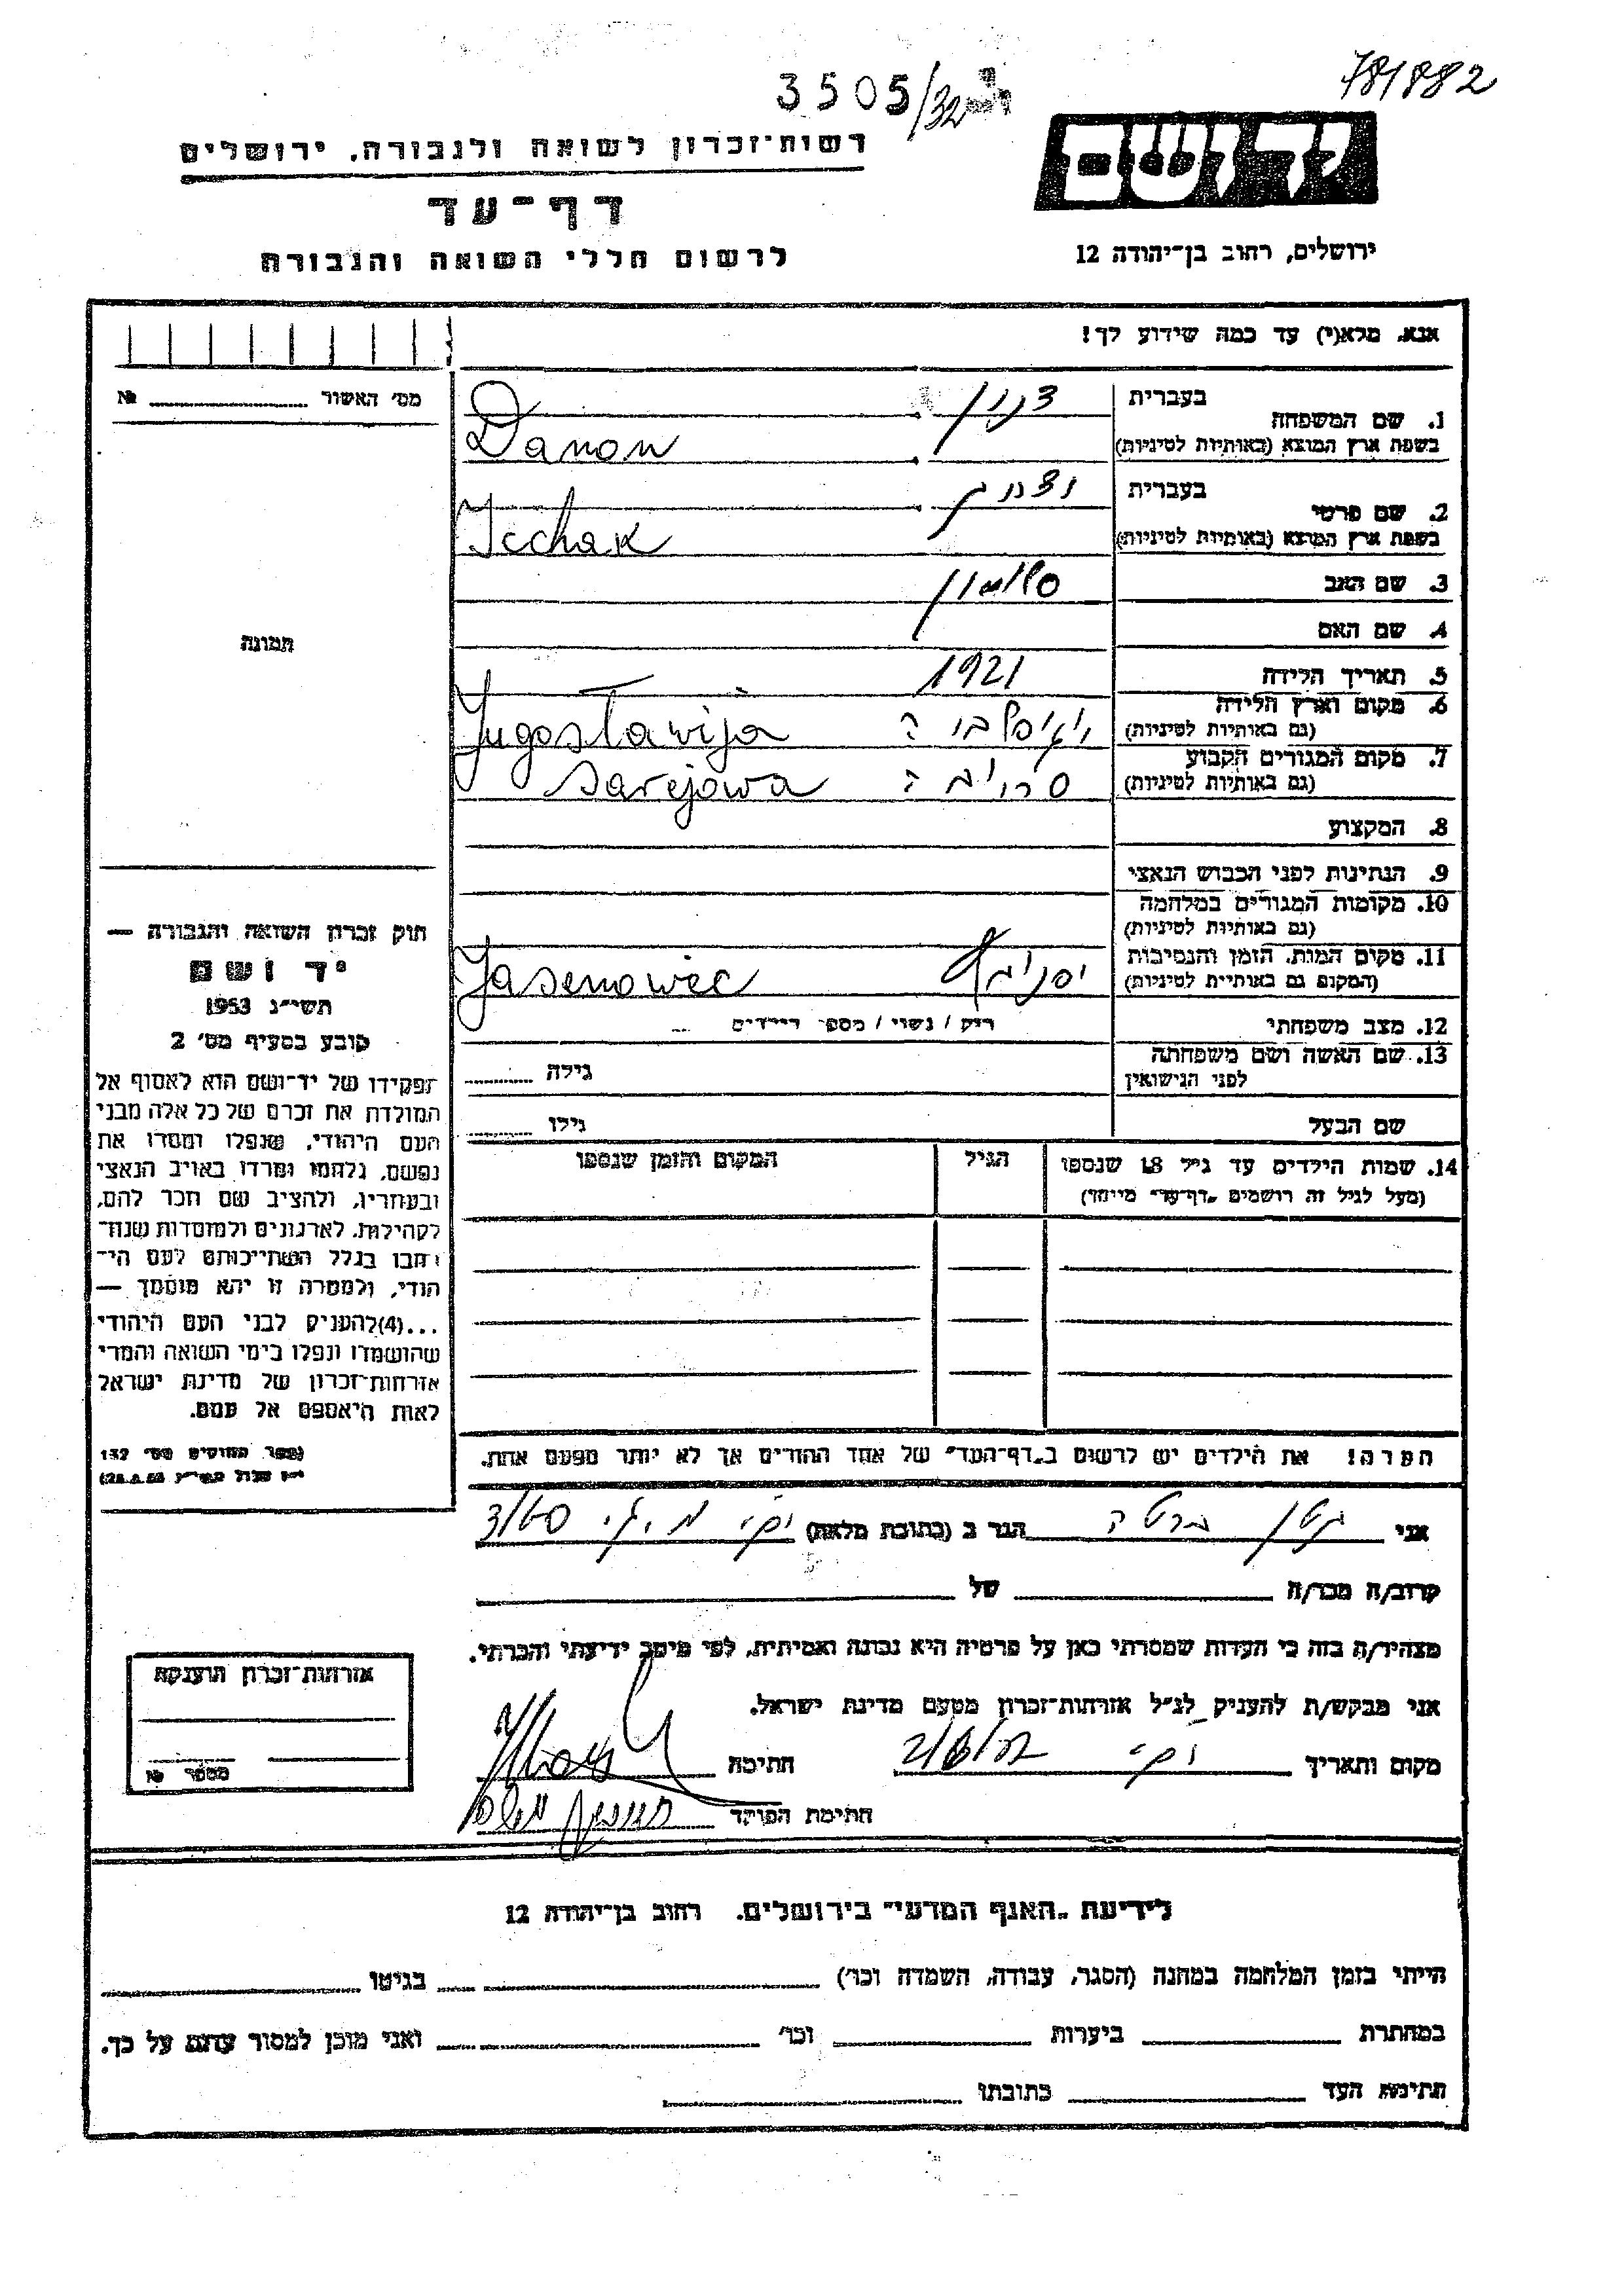 781882
3505/32
רשות־זכרון לשואה ולגבורה, ירושלים
דף־עד
לרשום חללי השואה והגבורה
יד ושם
ירושלים, רחוב בן־יהודה 12
אנא, מלא(י) עד כמה שידוע לך!
מס׳ האשור № 
1. שם המשפחה
בעברית דנון
בשפת ארץ המוצא (באותיות לטיניות) Danon
2. שם פרטי
בעברית יצחק
בשפת ארץ המוצא (באותיות לטיניות) Icchak
3. שם האב סולומון
4. שם האם
5. תאריך הלידה 1921
6. מקום וארץ הלידה
(גם באותיות לטיניות) Jugosławija
7. מקום המגורים הקבוע
(גם באותיות לטיניות) Sarejowa
8. המקצוע
9. הנתינות לפני הכבוש הנאצי
10. מקומות המגורים במלחמה
(גם באותיות לטיניות)
11. מקום המות, הזמן והנסיבות
(המקום גם באותיות לטיניות) Jasenowec
12. מצב משפחתי רווק / נשוי / מספר הילדים
13. שם האשה ושם משפחתה
לפני הנישואין גילה
שם הבעל גילו
14. שמות הילדים עד גיל 18 שנספו
(מעל לגיל זה רושמים „דף־עד״ מיוחד)
הגיל
המקום והזמן שנספו
תמונה
חוק זכרון השואה והגבורה —
יד ושם
תשי״ג 1953
קובע בסעיף מס׳ 2
תפקידו של יד־ושם הוא לאסוף אל
המולדת את זכרם של כל אלה מבני
העם היהודי, שנפלו ומסרו את
נפשם, נלחמו ומרדו באויב הנאצי
ובעוזריו, ולהציב שם וזכר להם,
לקהילות, לארגונים ולמוסדות שנח־
רבו בגלל השתייכותם לעם הי־
הודי, ולמטרה זו יהא מוסמך —
...(4)להעניק לבני העם היהודי
שהושמדו ונפלו בימי השואה והמרי
אזרחות־זכרון של מדינת ישראל
לאות היאספם אל עמם.
(ספר החוקים מס׳ 132
הערה! את הילדים יש לרשום ב„דף־העד״ של אחד ההורים אך לא יותר מפעם אחת.
אני ברטה הגר ב (כתובת מלאה)
קרוב/ה מכר/ה של
מצהיר/ה בזה כי העדות שמסרתי כאן על פרטיה היא נכונה ואמיתית, לפי מיטב ידיעתי והכרתי.
אני מבקש/ת להעניק לנ״ל אזרחות־זכרון מטעם מדינת ישראל.
מקום ותאריך חתימה
חתימת הפוקד
אזרחות־זכרון הוענקה
מספר №
לידיעת „האגף המדעי״ בירושלים, רחוב בן־יהודה 12
הייתי בזמן המלחמה במחנה (הסגר, עבודה, השמדה וכו׳) בגיטו
במחתרת ביערות וכו׳ ואני מוכן למסור עדות על כך.
חתימת העד כתובתו